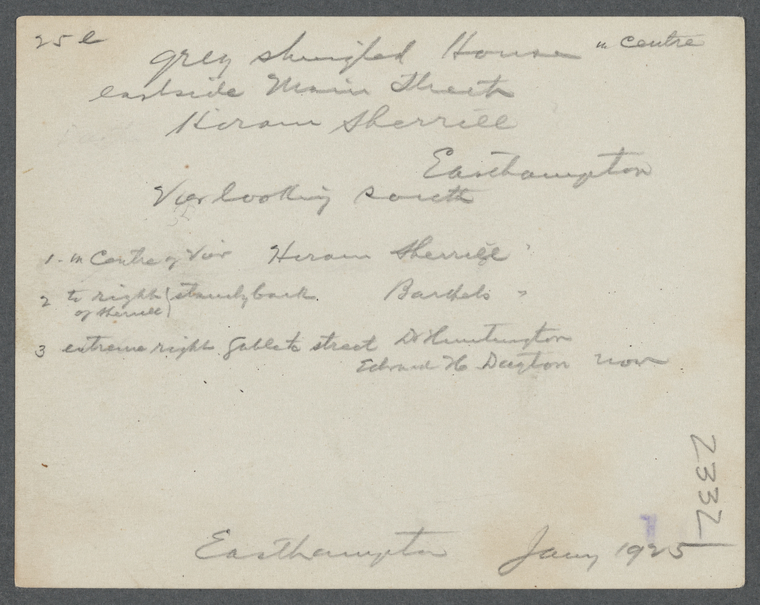 25 e
grey shingled House in centre
eastside Main Street
Hiram Sherrill
Easthampton
View looking south
1 - in Centre of View Hiram Sherrill
2 to right (standg back Barthels "
of Sherrill)
3 extreme right Gable to street Dr Huntington
Edward H Dayton now
2332
Easthampton Jany 1925